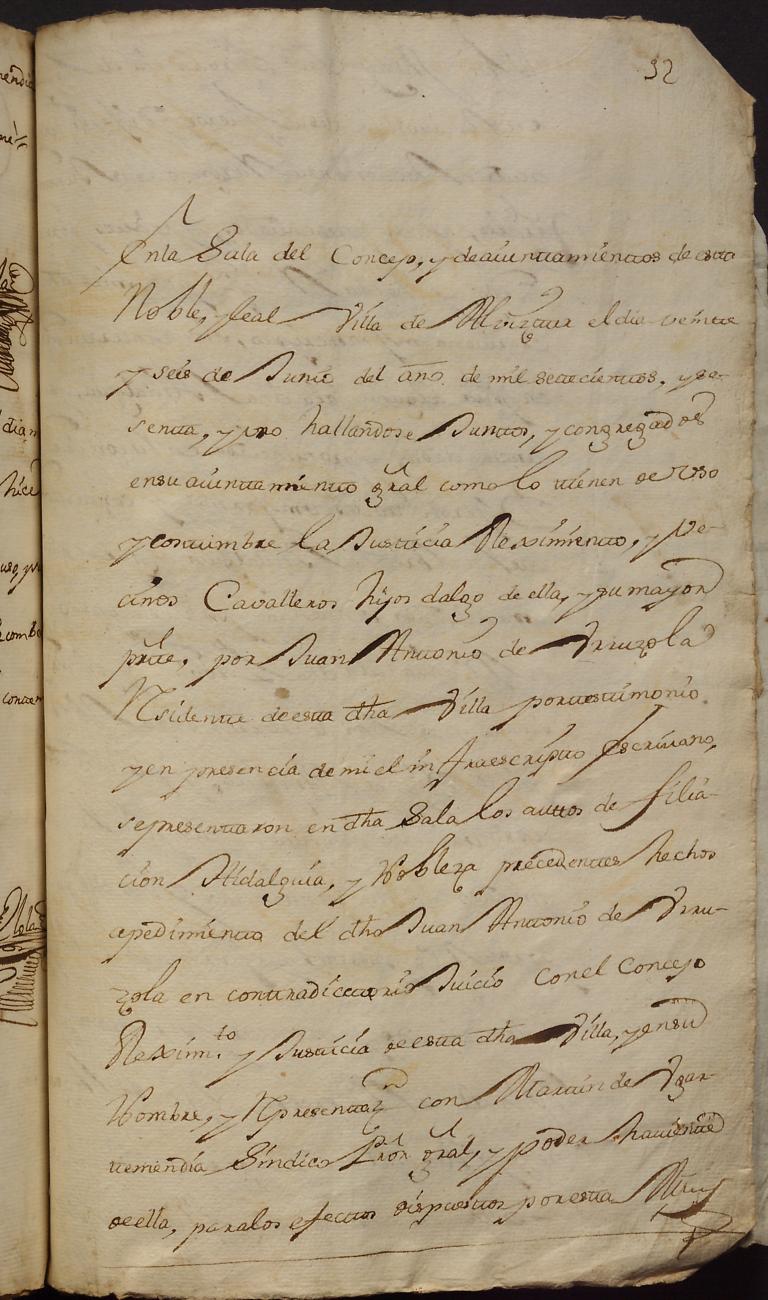 32
En la Sala del Concep, y de aiuntamientos de esta
Noble, y leal Villa de el dia veinte
y seis de Junio del año de mil setecientos, y se-
senta, y uno hallandose Juntos, y congregados
en su aiuntamiento gral como lo tienen de Uso
y contumbre la Justicia Reximiento, y Ve-
cinos Cavalleros hijos dalgo de ella, y su mayor
prte, por Juan Antonio de Urruzola
Residente de esta dha Villa por testimonio
y en presencia de mi el infraescripto Escrivano,
se presentaron en dha Sala los autos de filia-
cion Hidalguia, y Nobleza precedentes hechos
a pedimiento del dho Juan Antonio de Urru-
zola en contradictorio Juicio con el Concejo
Reximto y Justicia de esta dha Villa, y en su
Nombre, y Representazn con Martin de Ugar-
temendia Sindico Pror gral, y poder haviente
de ella, para los efectos dispuestos por esta